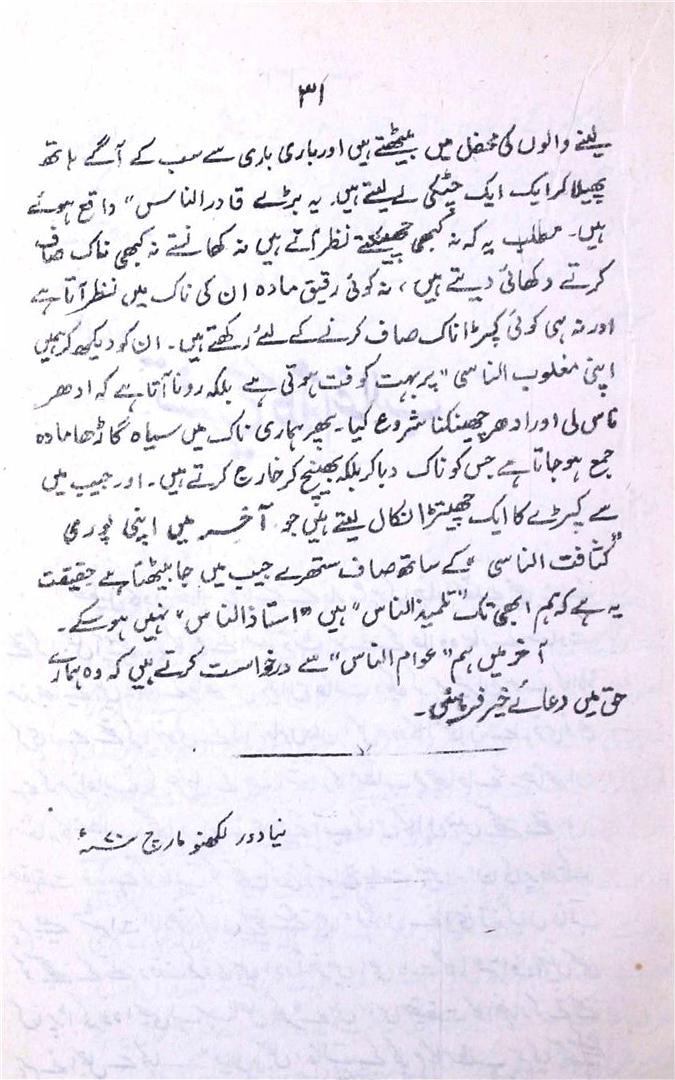 ۳۱
لینے والوں کی محفل میں بیٹھتے ہیں اور باری باری سے سب کے آگے ہاتھ
پھیلا کر ایک ایک چٹکی لے لیتے ہیں۔ یہ بڑے قادر الناس" واقع ہوئے
ہیں۔ مطلب یہ کہ نہ کبھی چھینکتے نظر آتے ہیں نہ کھانستے نہ کبھی ناک صاف
کرتے دکھائی دیتے ہیں، نہ کوئی رقیق مادہ ان کی ناک میں نظر آتا ہے
اور نہ ہی کوئی کپڑا ناک صاف کرنے کے لئے رکھتے ہیں۔ ان کو دیکھ کر ہمیں
اپنی مغلوب الناسی" پر بہت کوفت ہوتی ہے بلکہ رونا آتا ہے کہ ادھر
ناس لی اور ادھر چھینکنا شروع کیا۔ پھر ہماری ناک میں سیاہ گاڑھا مادہ
جمع ہو جاتا ہے جس کو ناک دبا کر بلکہ بھینچ کر خارج کرتے ہیں۔ اور جیب میں
سے کپڑے کا ایک چھیتڑا نکال لیتے ہیں جو آخر میں اپنی پوری
"کثافت الناسی" کے ساتھ صاف ستھرے جیب میں جا بیٹھتا ہے حقیقت
یہ ہے کہ ہم ابھی تک "تلمیذ الناس" ہیں "استاذ الناس" نہیں ہوئے۔
آخر میں ہم "عوام الناس" سے درخواست کرتے ہیں کہ وہ ہمارے
حق میں دعائے خیر فرمائیں۔
نیا دور لکھنو مارچ ۷۰ء